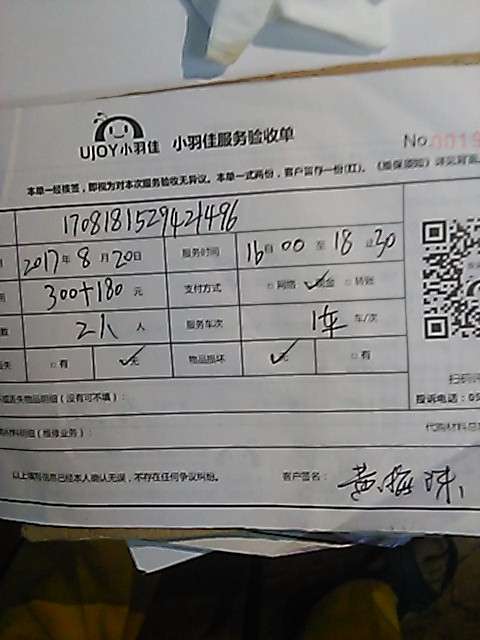 UJOY小羽佳 小羽佳服务验收单
No.0019
本单一经核签，即视为对本次服务验收无异议。本单一式两份，客户留存一份(红)。《维保须知》详见背面
1708181529421496
2017年8月20日 服务时间 16点00至18点30
300+180元 支付方式 □网络 ✓现金 □转账
2人人 服务车次 1车 车/次
□有 ✓无 物品损坏 ✓无 □有
扫码
丢失物品明细（没有可不填）： 投诉电话：05
材料明细（维修业务）： 代购材料总
以上填写信息已经本人确认无误，不存在任何争议纠纷。 客户签名：黄梅珠